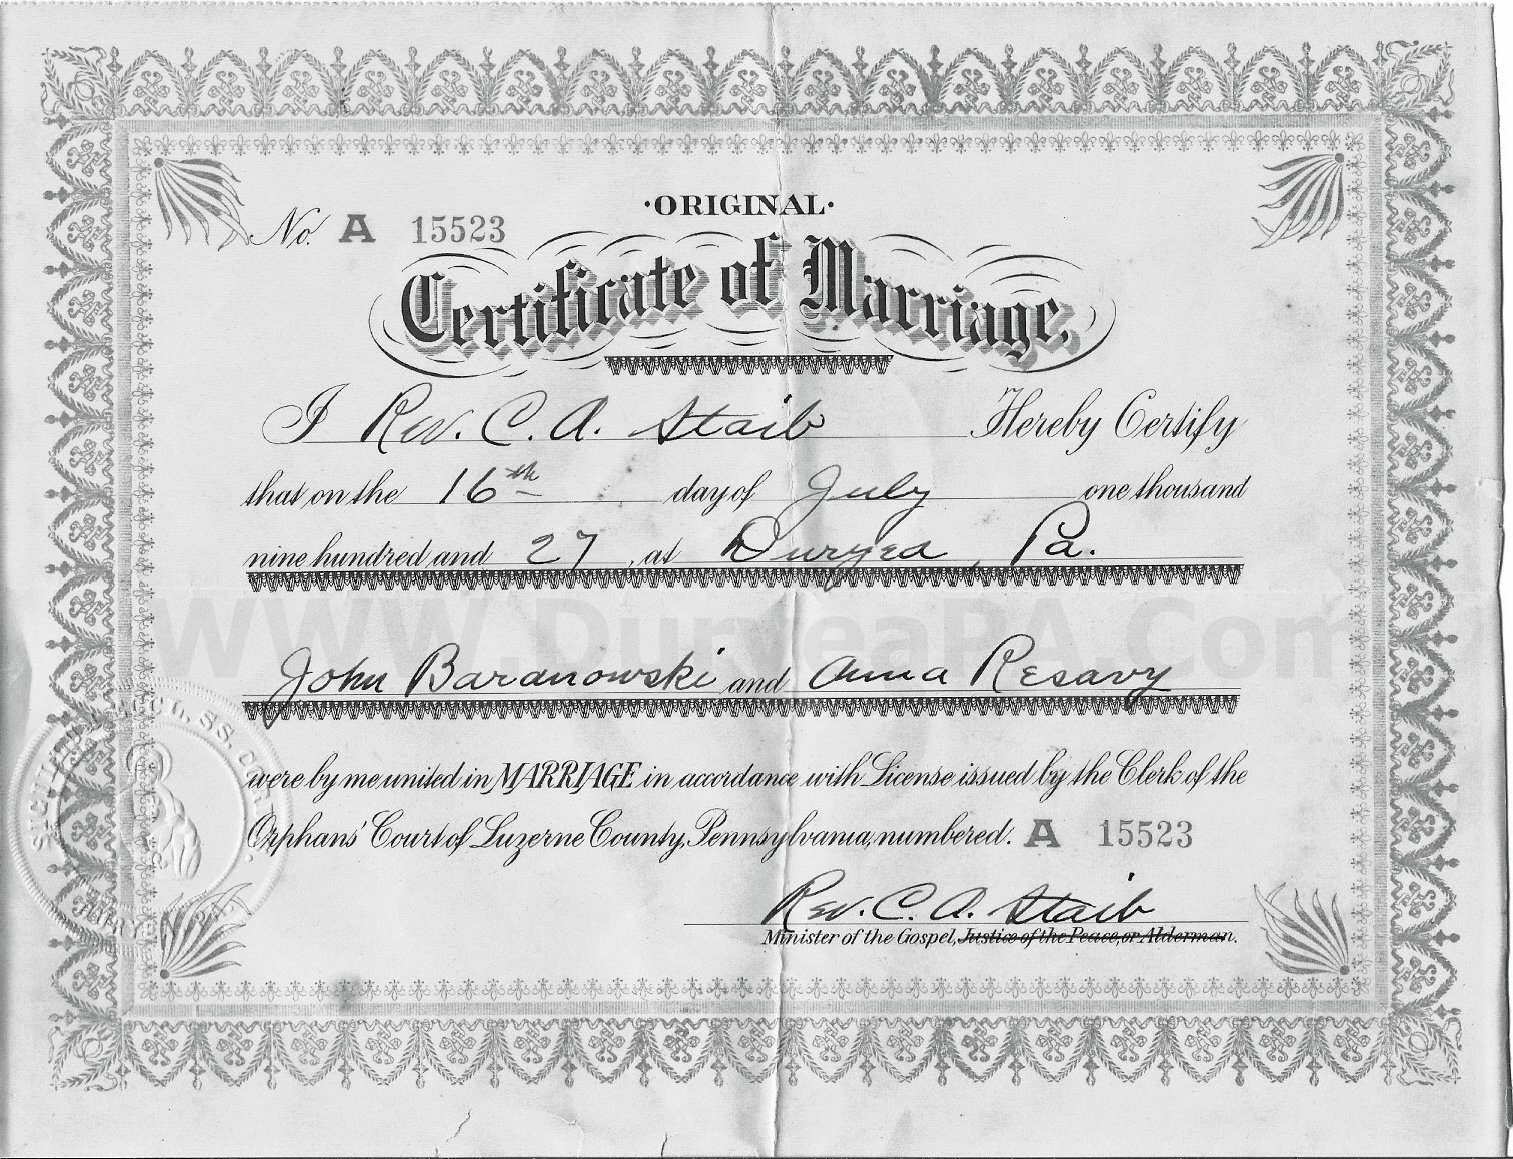 ·ORIGINAL·
No. A 15523
Certificate of Marriage.
I Rev. C. A. Staib Hereby Certify
that on the 16th day of July one thousand
nine hundred and 27, at Duryea, Pa.
WWW.DuryeaPA.Com
John Baranowski and Anna Resavy
were by me united in MARRIAGE in accordance with License issued by the Clerk of the
Orphans' Court of Luzerne County, Pennsylvania, numbered. A 15523
Rev. C. A. Staib
Minister of the Gospel, Justice of the Peace, or Alderman.